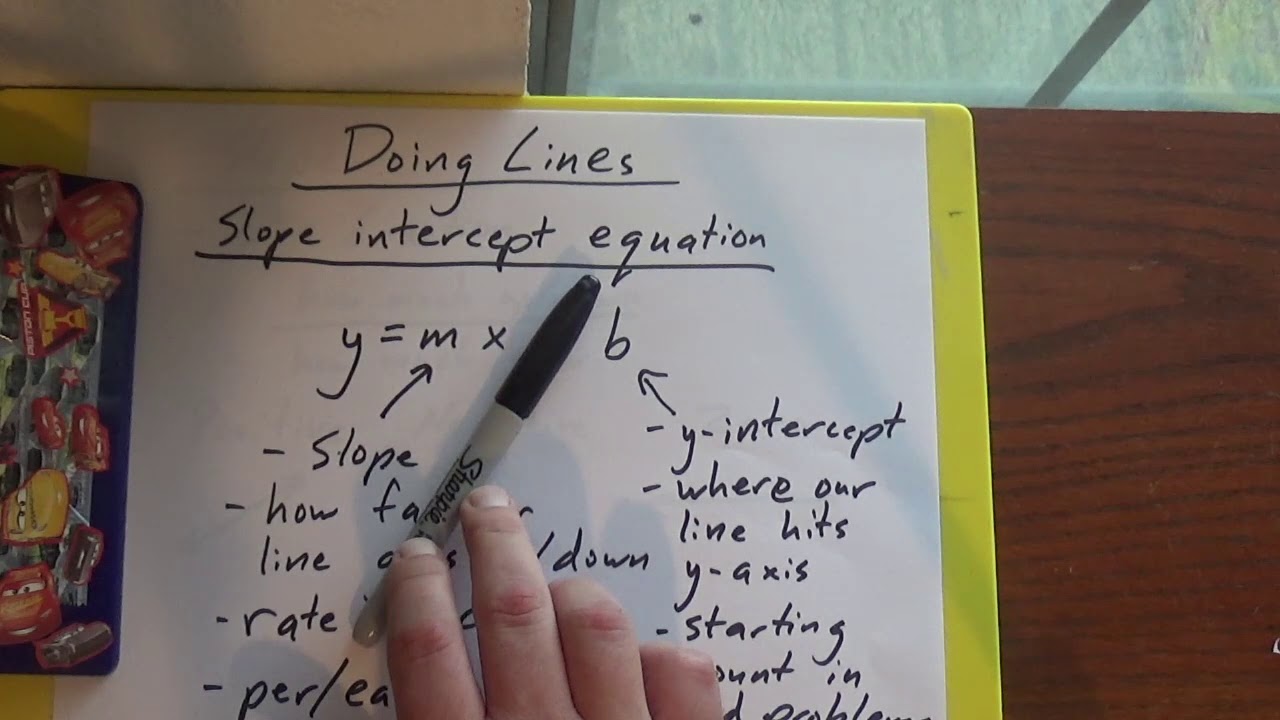 Doing Lines
Slope intercept equation
y = m x b
- Slope
- how
line /down
- rate
- per/ea
- y-intercept
- where our
line hits
y-axis
- starting
in
problems
Sharpie
PISTON CUP